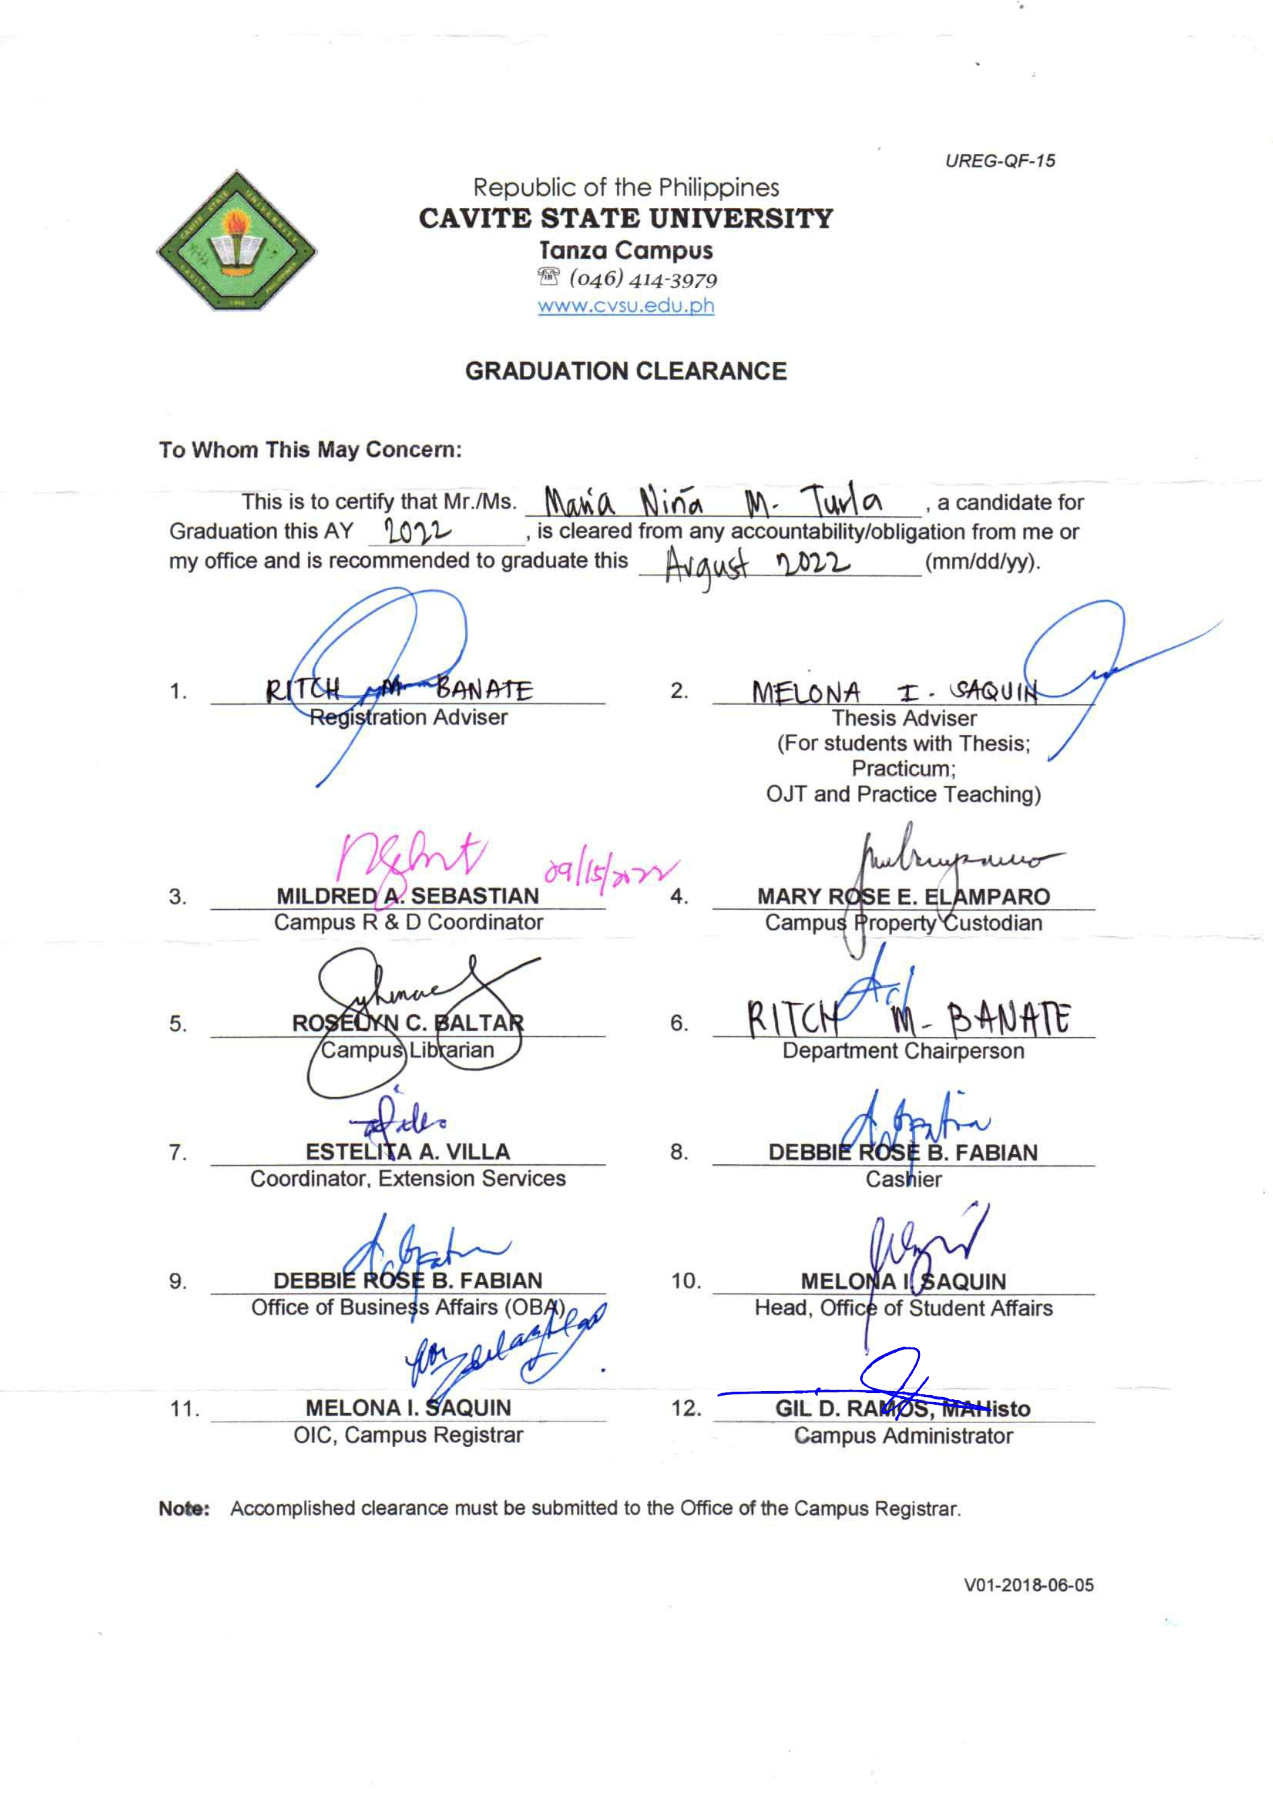 UREG-QF-15
Republic of the Philippines
CAVITE STATE UNIVERSITY
Tanza Campus
☏ (046) 414-3979
www.cvsu.edu.ph
GRADUATION CLEARANCE
To Whom This May Concern:
This is to certify that Mr./Ms. Maria Niña M. Turla, a candidate for
Graduation this AY 2022, is cleared from any accountability/obligation from me or
my office and is recommended to graduate this August 2022 (mm/dd/yy).
1. RITCH M. BANATE
Registration Adviser
2. MELONA I. SAQUIN
Thesis Adviser
(For students with Thesis;
Practicum;
OJT and Practice Teaching)
09/15/2022
3. MILDRED A. SEBASTIAN
Campus R & D Coordinator
4. MARY ROSE E. ELAMPARO
Campus Property Custodian
5. ROSELYN C. BALTAR
Campus Librarian
6. RITCH M. BANATE
Department Chairperson
7. ESTELITA A. VILLA
Coordinator, Extension Services
8. DEBBIE ROSE B. FABIAN
Cashier
9. DEBBIE ROSE B. FABIAN
Office of Business Affairs (OBA)
10. MELONA I. SAQUIN
Head, Office of Student Affairs
11. MELONA I. SAQUIN
OIC, Campus Registrar
12. GIL D. RAMOS, MAHisto
Campus Administrator
Note: Accomplished clearance must be submitted to the Office of the Campus Registrar.
V01-2018-06-05